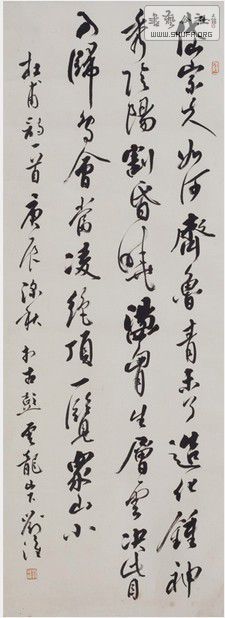 WWW.SHUFA.ORG
岱宗夫如何齊魯青未了造化鍾神
秀陰陽割昏曉盪胸生層雲決眥
入歸鳥會當凌絕頂一覽眾山小
杜甫詩一首庚辰深秋於古彭雲龍山下劉